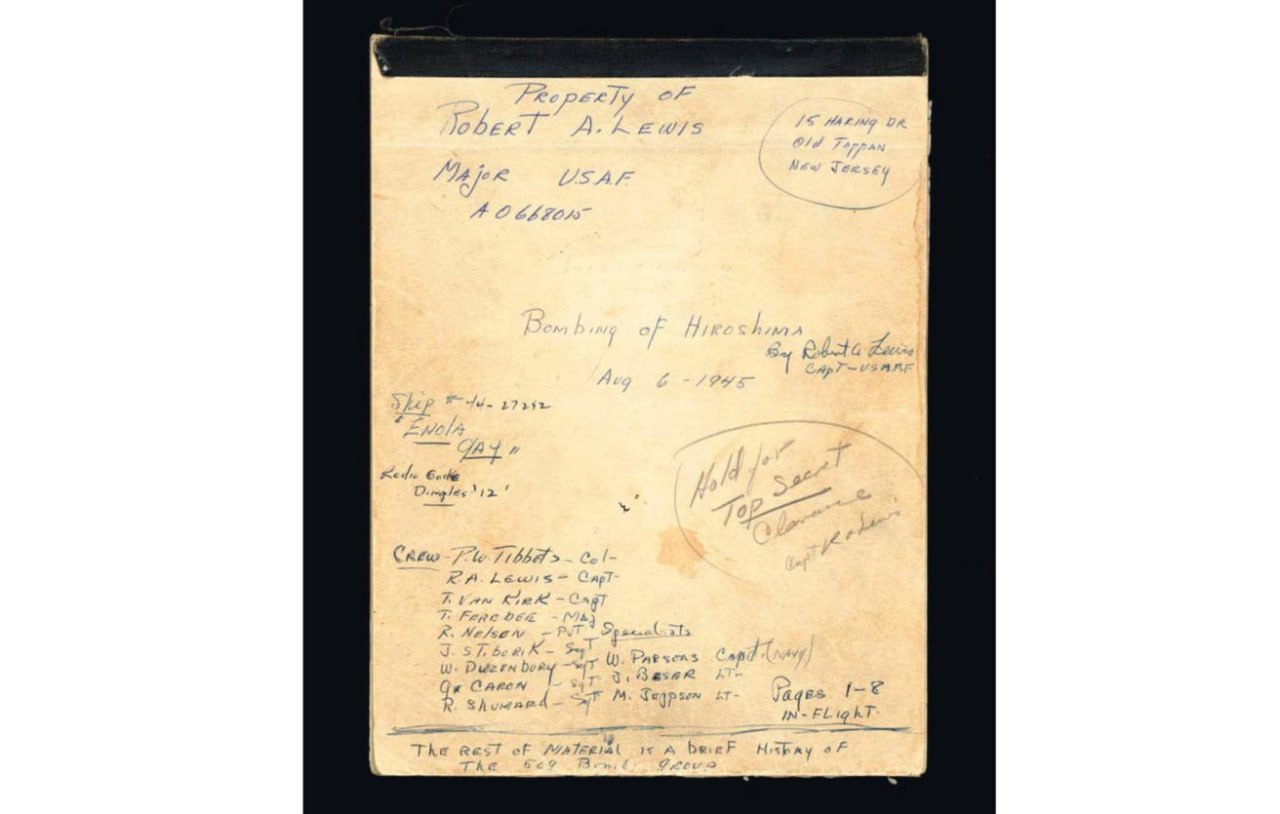 Property of
Robert A. Lewis
15 Haring Dr
Old Tappan
New Jersey
Major U.S.A.F.
AO668015
Bombing of Hiroshima
By Robert A Lewis
Capt-USAAF
Aug 6-1945
Ship # 44-27292
"Enola
Gay"
Dimples '12'
Hold for
Top Secret
Clearance
Capt R A Lewis
Crew - P.W. Tibbets - Col-
R.A. Lewis - Capt-
T. Van Kirk - Capt
T. Ferebee - Maj
R. Nelson - Pvt Specialists
J. Stiborik - Sgt
W. Duzenbury - Sgt W. Parsons Capt (Navy)
Caron - Sgt J. Beser Lt-
R. Shumard - Sgt M. Jeppson Lt-
Pages 1-8
In-Flight.
The rest of material is a brief history of
the 509 Bomb. Group